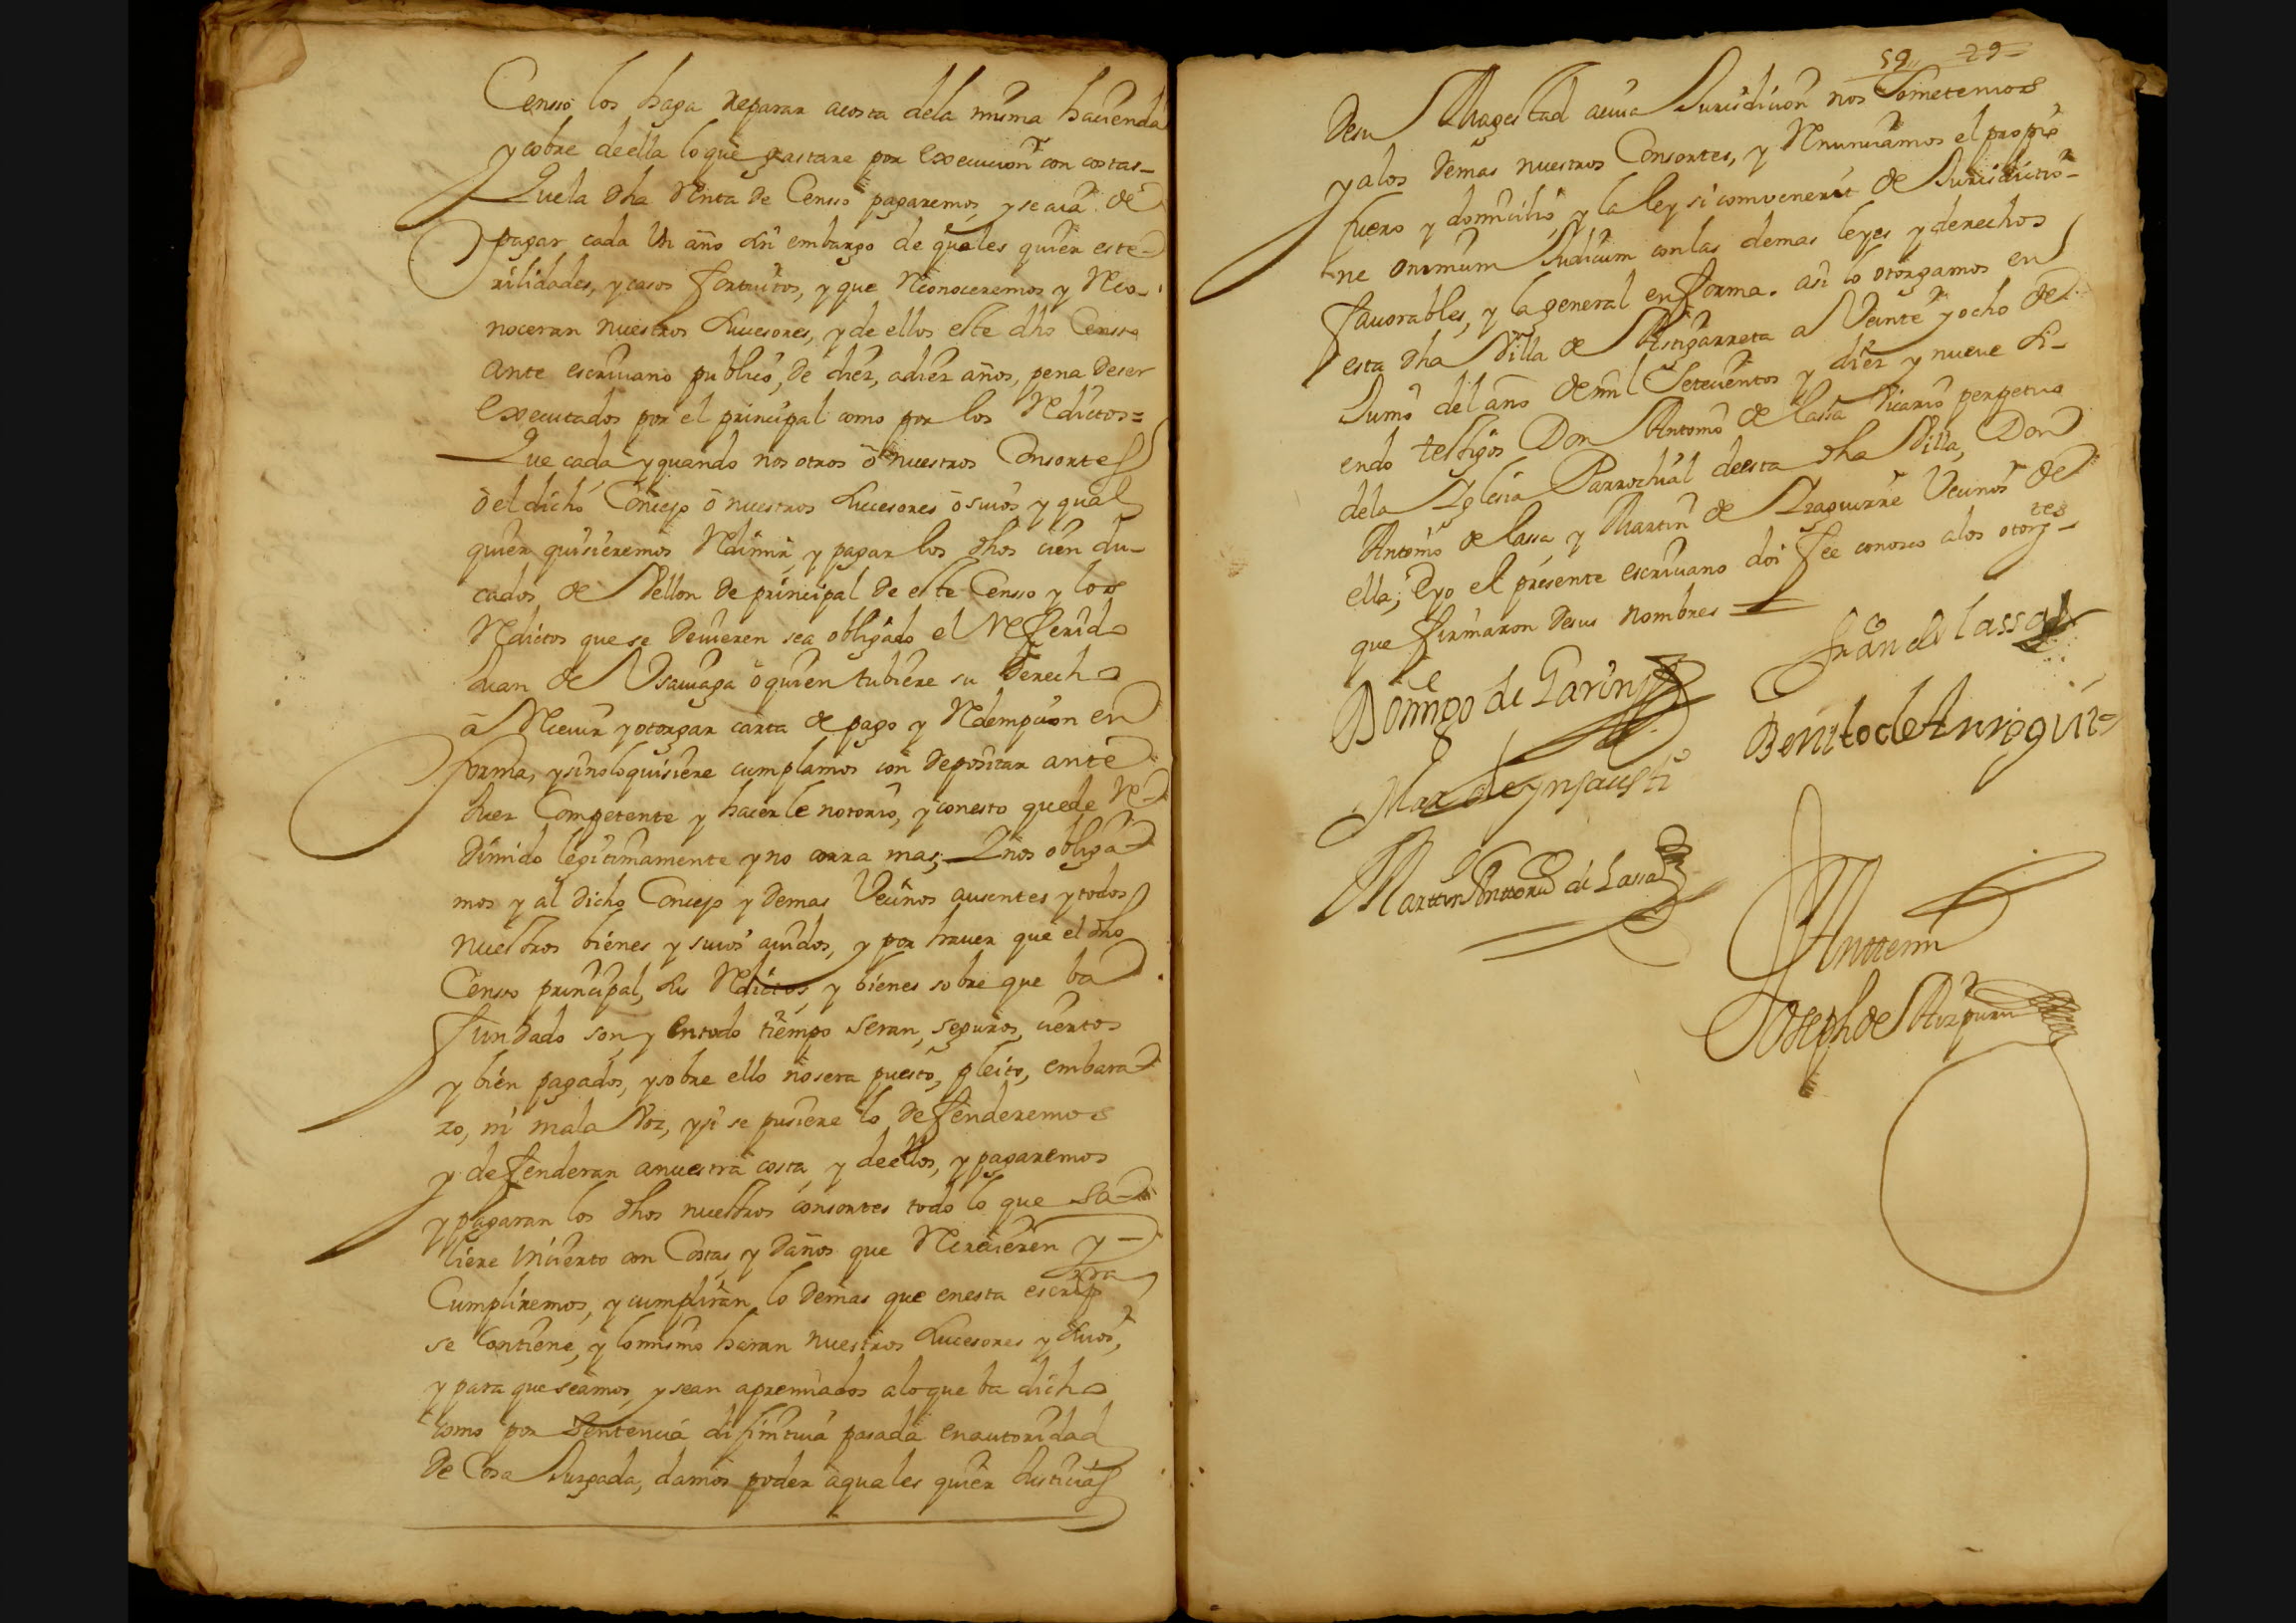 Censso los haga reparar acosta dela misma hacienda
y cobre deella loque gastare por execucion con costas_
Quela dha Renta de Censso pagaremos, y se aia de
pagar cada Un año sin embargo de quales quier este-
rilidades, y casos fortuitos, y que Reconoceremos y Reco-
noceran nuestros Sucesores, y de ellos este dho Censso
ante escriuano publico, de diez, adiez años, pena deser
executados por el principal como por los Reditos=
Que cada y quando nos otros ō nuestros Consortes
ō el dicho Concejo ō nuestros Sucesores ō suios y qual
quier quisieremos Redimir, y pagar los dhos cien du-
cados de Vellon de principal de este Censso y los
Reditos que se deuieren sea obligado el Referido
Juan de Vsauiaga ō quien tubiere su derecho
ā Reciuir y otorgar carta de pago y Redempcion en
forma, ysinoloquisiere cumplamos con depositar ante
Juez Competente y hacerle notorio, y conesto quede Re-
dimido legitimamente y no corra mas; Y nos obliga-
mos y al dicho Concejo y demas Vecinos ausentes y todos
nuestros bienes y suios auidos, y por hauer que el dho
Censso principal, sus Reditos, y bienes sobre que ba
fundado son y entodo tiempo seran, seguros, ciertos
y bien pagados, y sobre ello no sera puesto, pleito, embara-
zo, ni mala Voz, y si se pusiere lo defenderemos
y defenderan anuestra costa, y deellos, y pagaremos
y pagaran los dhos nuestros consortes todo lo que sa-
liere incierto con Costas, y daños que Recrecieren y-
Cumpliremos, y cumpliran lo demas que enesta escripra
se contiene, y lomismo haran nuestros Sucesores y Suios,
y para que seamos, y sean apremiados alo que ba dicho
como por sentencia difinitiua pasada enautoridad
de Cosa Juzgada, damos poder aquales quier Justicias
59,, 29-
desu Magestad acuia Jurisdicion nos Sometemos
y alos demas nuestros Consortes, y Renunciamos el propio
fuero y domicilio, y la ley si comvenerit de Jurisdictio-
ne omnium Judicum conlas demas leyes y derechos
fauorables, y la general en forma. asi lo otorgamos en
esta dha Villa de Astigarreta a Veinte y ocho de
Junio del año de mil Setecientos y diez y nueve si-
endo testigos Don Antonio de lassa Vicario perpetuo
dela Yglesia Parrochial deesta dha Villa, Don
Antonio de lassa, y Martin de Yzaguirre Vecinos de
ella; Eyo el presente escriuano doi fee conosco alos otorgtes-
que firmaron desus nombres =
Domgo de Garin
Franco de lassa
Benito de Arregui
Mar de ynsausti
Martin Anttonio de Lassa
Anttemi
Joseph de Aizpuru